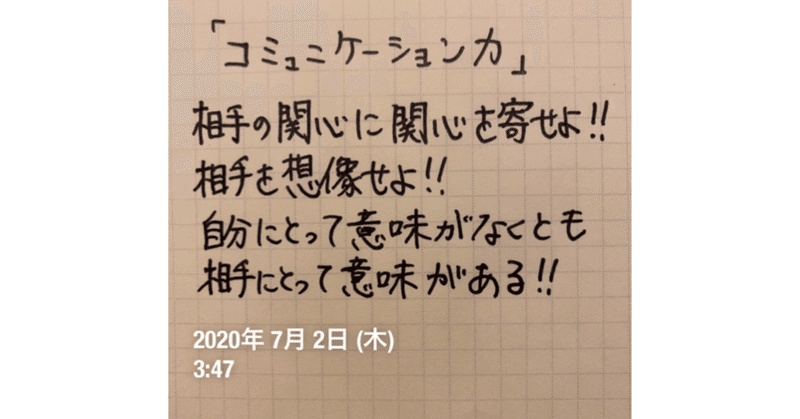 「コミュニケーション力」
相手の関心に関心を寄せよ!!
相手を想像せよ!!
自分にとって意味がなくとも
相手にとって意味がある!!
2020年 7月 2日 (木)
3:47